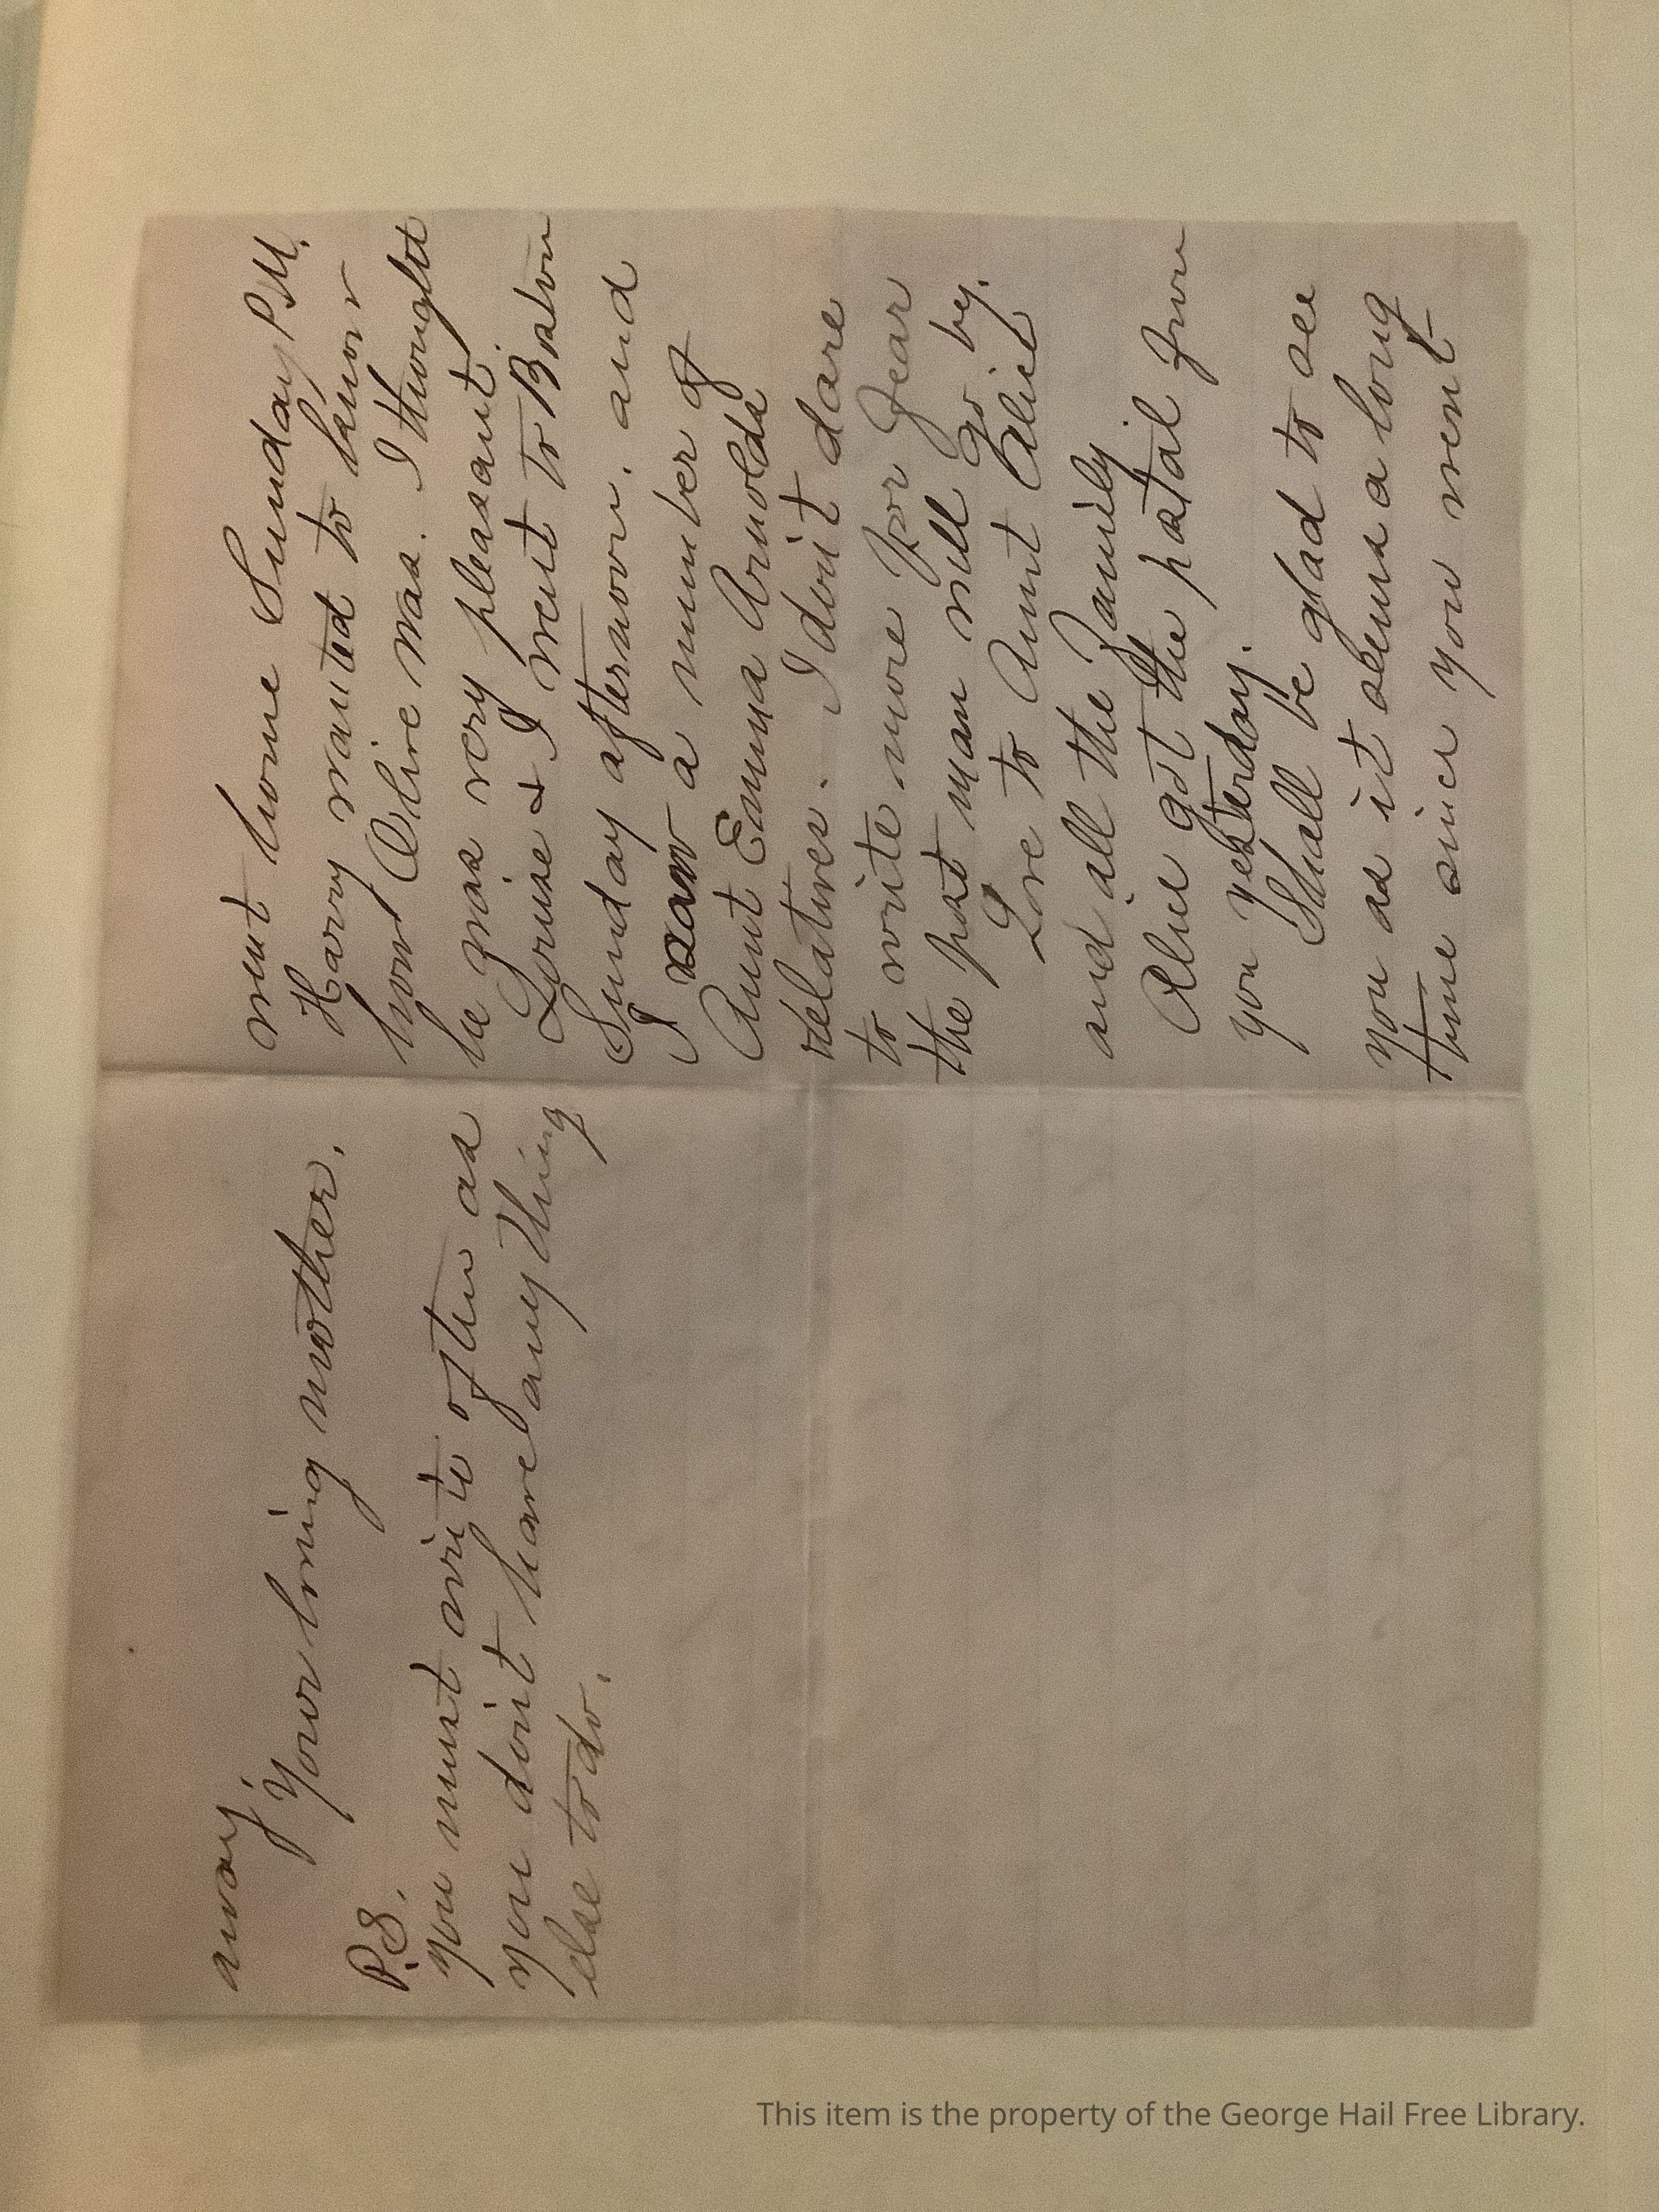 went home Sunday P.M.
Harry wanted to know
how Olive was. I thought
he was very pleasant.
Louise & I went to Boston
Sunday afternoon. and
I saw a number of
Aunt Emma Arnolds
relatives. I don't dare
to write more for fear
the post man will go by.
Love to Aunt Alice
and all the family.
Alice got the postal from
you yesterday.
Shall be glad to see
you as it seems a long
time since you went
away.
Your loving mother.
P.S.
You must write often as
you don't have anything
else to do.
This item is the property of the George Hail Free Library.